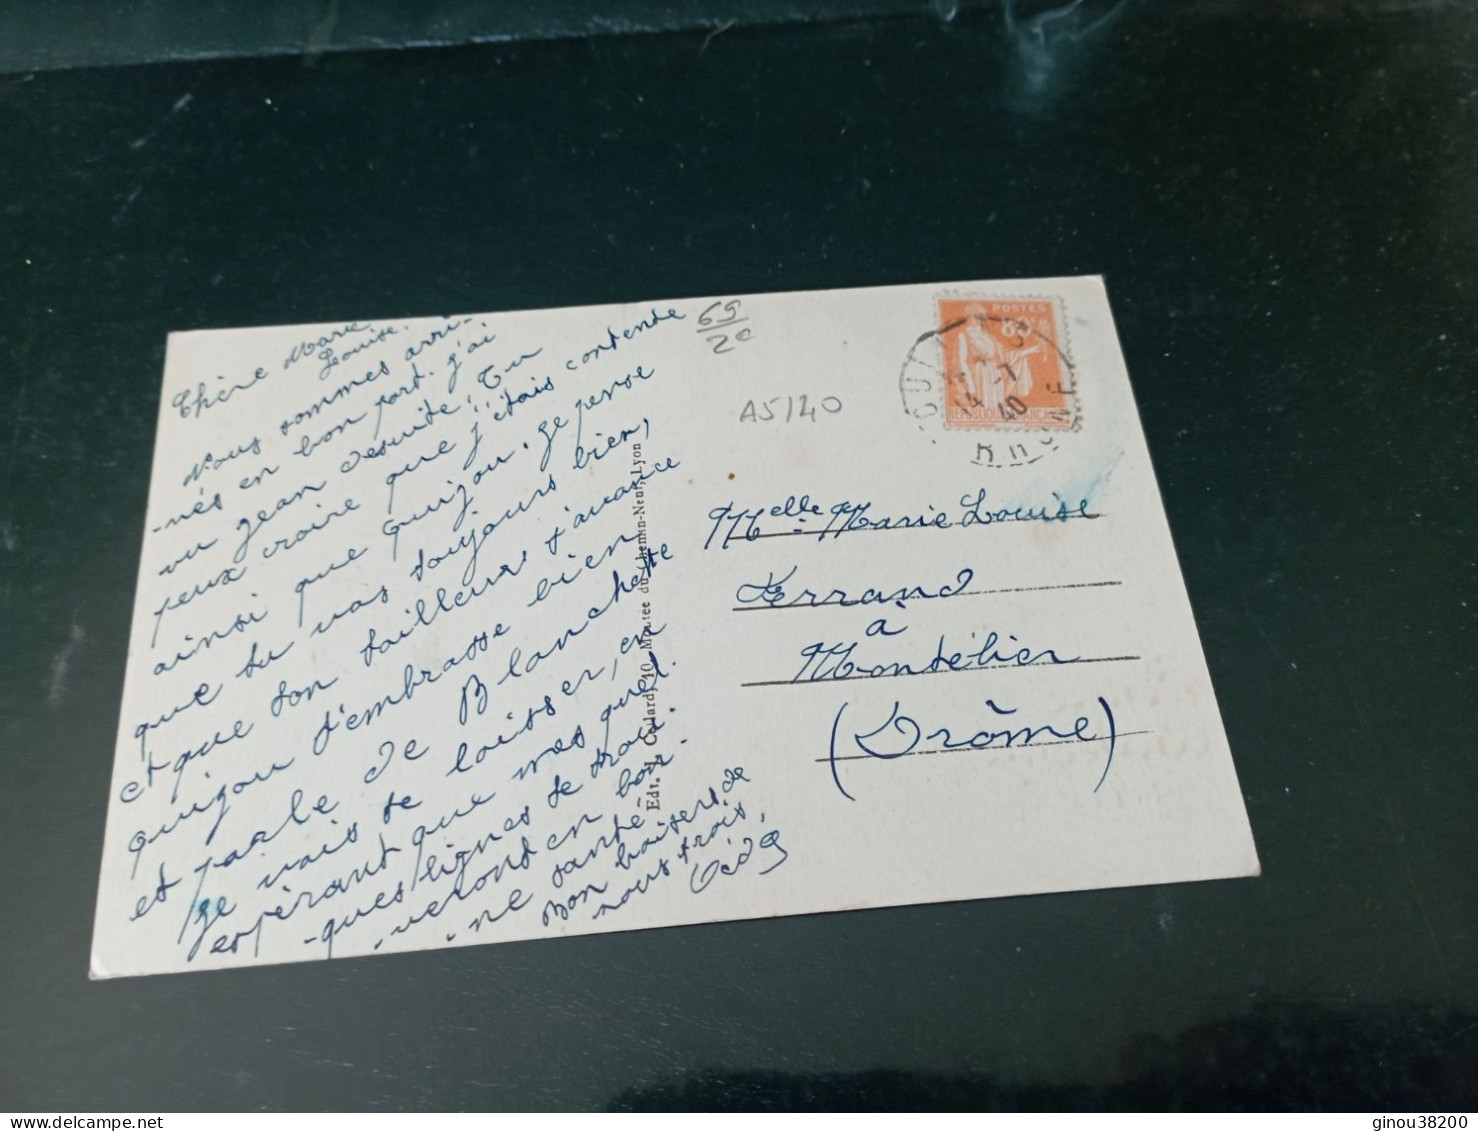 Chère Marie
Louise.
Nous sommes arri-
-nés en bon port. j'ai
vu Jean desuite, Tu
peux croire que j'étais contente
ainsi que Quijou. Je pense
que tu vas toujours bien,
et que ton tailleur t'avance
quijou t'embrasse bien
et parle de Blanchette
Je vais te laisser, en
espérant que mes quel
-ques lignes te trou.
-veront en bon-
-ne santé
Bon baisers de
nous trois.
69
2c
A5140
Edt. J. Collard, 10, Montée du Chemin-Neuf, Lyon
POSTES
RÉPUBLIQUE FRANÇAISE
14 -1
40
RHONE
Melle Marie Louise
Ferrand
a
Montélier
(Drôme)
ginou38200